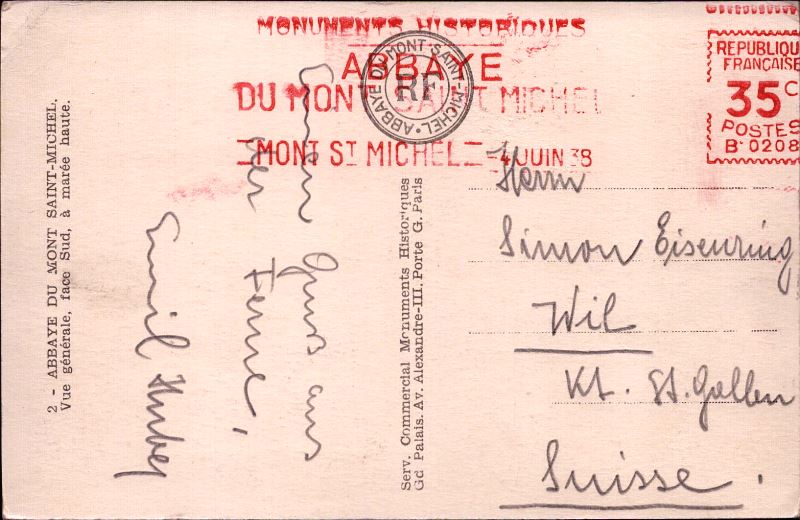 MONUMENTS HISTORIQUES
ABBAYE
DU MONT SAINT MICHEL
MONT ST MICHEL - 4 JUIN 38
ABBAYE DU MONT SAINT-MICHEL
RF
REPUBLIQUE
FRANÇAISE
35 C
POSTES
B· 0208
2 - ABBAYE DU MONT SAINT-MICHEL.
Vue générale, face Sud, à marée haute.
Einen Gruß aus
der Ferne,
Emil Huber
Serv. Commercial Monuments Historiques
Gd Palais. Av. Alexandre-III. Porte G. Paris
Herrn
Simon Eisenring
Wil
Kt. St. Gallen
Suisse.